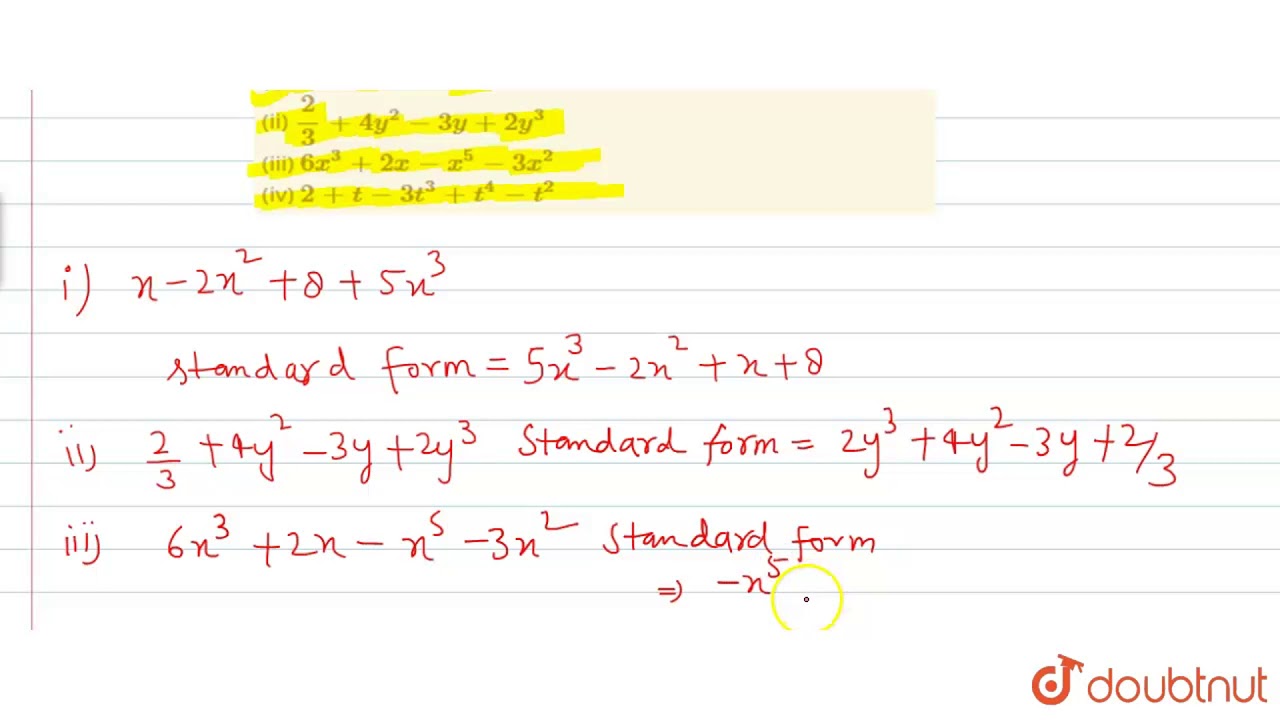 (ii) 2/3 + 4y² − 3y + 2y³
(iii) 6x³ + 2x − x⁵ − 3x²
(iv) 2 + t − 3t³ + t⁴ − t²
i) x − 2x² + 8 + 5x³
standard form = 5x³ − 2x² + x + 8
ii) 2/3 + 4y² − 3y + 2y³ Standard form = 2y³ + 4y² − 3y + 2/3
iii) 6x³ + 2x − x⁵ − 3x² Standard form
⇒ −x⁵
doubtnut